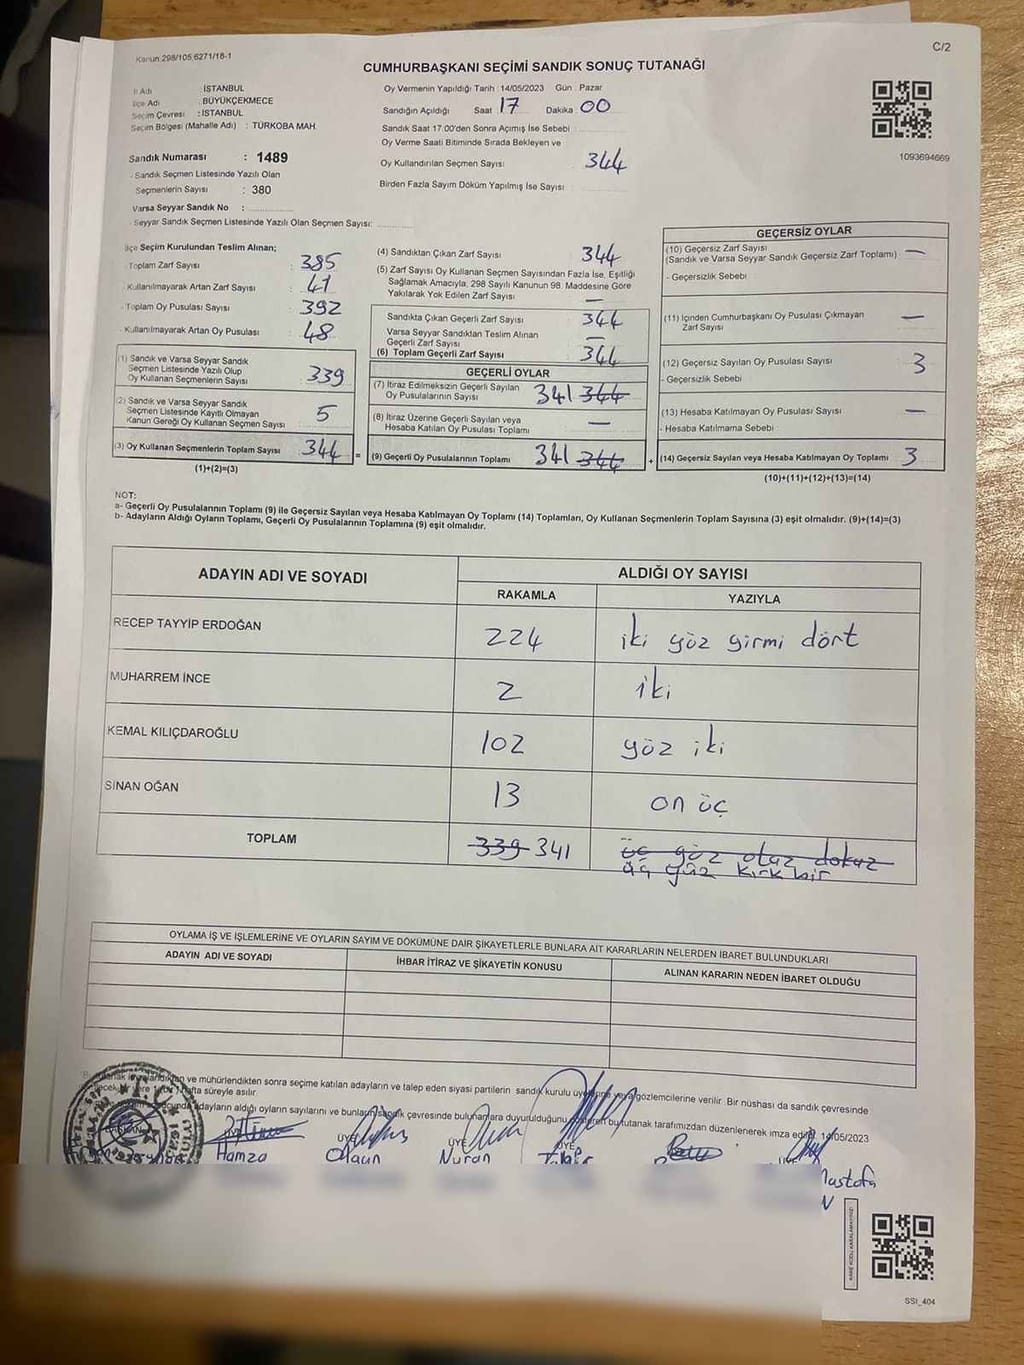 Kanun:298/105,6271/18-1
C/2
CUMHURBAŞKANI SEÇİMİ SANDIK SONUÇ TUTANAĞI
İl Adı : İSTANBUL
İlçe Adı : BÜYÜKÇEKMECE
Seçim Çevresi : İSTANBUL
Seçim Bölgesi (Mahalle Adı) : TÜRKOBA MAH.
Sandık Numarası : 1489
Sandık Seçmen Listesinde Yazılı Olan
Seçmenlerin Sayısı : 380
Varsa Seyyar Sandık No :
Seyyar Sandık Seçmen Listesinde Yazılı Olan Seçmen Sayısı:
Oy Vermenin Yapıldığı Tarih : 14/05/2023 Gün : Pazar
Sandığın Açıldığı Saat 17 Dakika 00
Sandık Saat 17:00'den Sonra Açımış İse Sebebi :
Oy Verme Saati Bitiminde Sırada Bekleyen ve
Oy Kullandırılan Seçmen Sayısı 344
Birden Fazla Sayım Döküm Yapılmış İse Sayısı :
1093694669
İlçe Seçim Kurulundan Teslim Alınan;
Toplam Zarf Sayısı : 385
Kullanılmayarak Artan Zarf Sayısı : 41
Toplam Oy Pusulası Sayısı : 392
Kullanılmayarak Artan Oy Pusulası : 48
(1) Sandık ve Varsa Seyyar Sandık
Seçmen Listesinde Yazılı Olup
Oy Kullanan Seçmenlerin Sayısı 339
(2) Sandık ve Varsa Seyyar Sandık
Seçmen Listesinde Kayıtlı Olmayan
Kanun Gereği Oy Kullanan Seçmen Sayısı 5
(3) Oy Kullanan Seçmenlerin Toplam Sayısı 344 =
(1)+(2)=(3)
(4) Sandıktan Çıkan Zarf Sayısı 344
(5) Zarf Sayısı Oy Kullanan Seçmen Sayısından Fazla İse, Eşitliği
Sağlamak Amacıyla, 298 Sayılı Kanunun 98. Maddesine Göre
Yakılarak Yok Edilen Zarf Sayısı —
Sandıkta Çıkan Geçerli Zarf Sayısı 344
Varsa Seyyar Sandıktan Teslim Alınan
Geçerli Zarf Sayısı —
(6) Toplam Geçerli Zarf Sayısı 344
GEÇERLİ OYLAR
(7) İtiraz Edilmeksizin Geçerli Sayılan
Oy Pusulalarının Sayısı 341 344
(8) İtiraz Üzerine Geçerli Sayılan veya
Hesaba Katılan Oy Pusulası Toplamı —
(9) Geçerli Oy Pusulalarının Toplamı 341 344 +
GEÇERSİZ OYLAR
(10) Geçersiz Zarf Sayısı
(Sandık ve Varsa Seyyar Sandık Geçersiz Zarf Toplamı) —
- Geçersizlik Sebebi
(11) İçinden Cumhurbaşkanı Oy Pusulası Çıkmayan
Zarf Sayısı —
(12) Geçersiz Sayılan Oy Pusulası Sayısı 3
- Geçersizlik Sebebi
(13) Hesaba Katılmayan Oy Pusulası Sayısı —
- Hesaba Katılmama Sebebi
(14) Geçersiz Sayılan veya Hesaba Katılmayan Oy Toplamı 3
(10)+(11)+(12)+(13)=(14)
NOT:
a- Geçerli Oy Pusulalarının Toplamı (9) ile Geçersiz Sayılan veya Hesaba Katılmayan Oy Toplamı (14) Toplamları, Oy Kullanan Seçmenlerin Toplam Sayısına (3) eşit olmalıdır. (9)+(14)=(3)
b- Adayların Aldığı Oyların Toplamı, Geçerli Oy Pusulalarının Toplamına (9) eşit olmalıdır.
ADAYIN ADI VE SOYADI
ALDIĞI OY SAYISI
RAKAMLA YAZIYLA
RECEP TAYYİP ERDOĞAN 224 iki yöz yirmi dört
MUHARREM İNCE 2 iki
KEMAL KILIÇDAROĞLU 102 yöz iki
SİNAN OĞAN 13 on üç
TOPLAM 339 341 üç yöz otuz dokuz
üç yüz kırk bir
OYLAMA İŞ VE İŞLEMLERİNE VE OYLARIN SAYIM VE DÖKÜMÜNE DAİR ŞİKAYETLERLE BUNLARA AİT KARARLARIN NELERDEN İBARET BULUNDUKLARI
ADAYIN ADI VE SOYADI
İHBAR İTİRAZ VE ŞİKAYETİN KONUSU
ALINAN KARARIN NEDEN İBARET OLDUĞU
ve mühürlendikten sonra seçime katılan adayların ve talep eden siyasi partilerin sandık kurulu üyelerine veya gözlemcilerine verilir. Bir nüshası da sandık çevresinde
süreyle asılır.
adayların aldığı oyların sayılarını ve bunların sandık çevresinde bulunanlara duyurulduğunu gösteren bu tutanak tarafımızdan düzenlenerek imza edildi. 14/05/2023
T.C.
ÜYE ÜYE ÜYE ÜYE
Hamza Olgun Nuran
Mustafa
N
KARE KODU KARALAMAYINIZ!
SSI_404